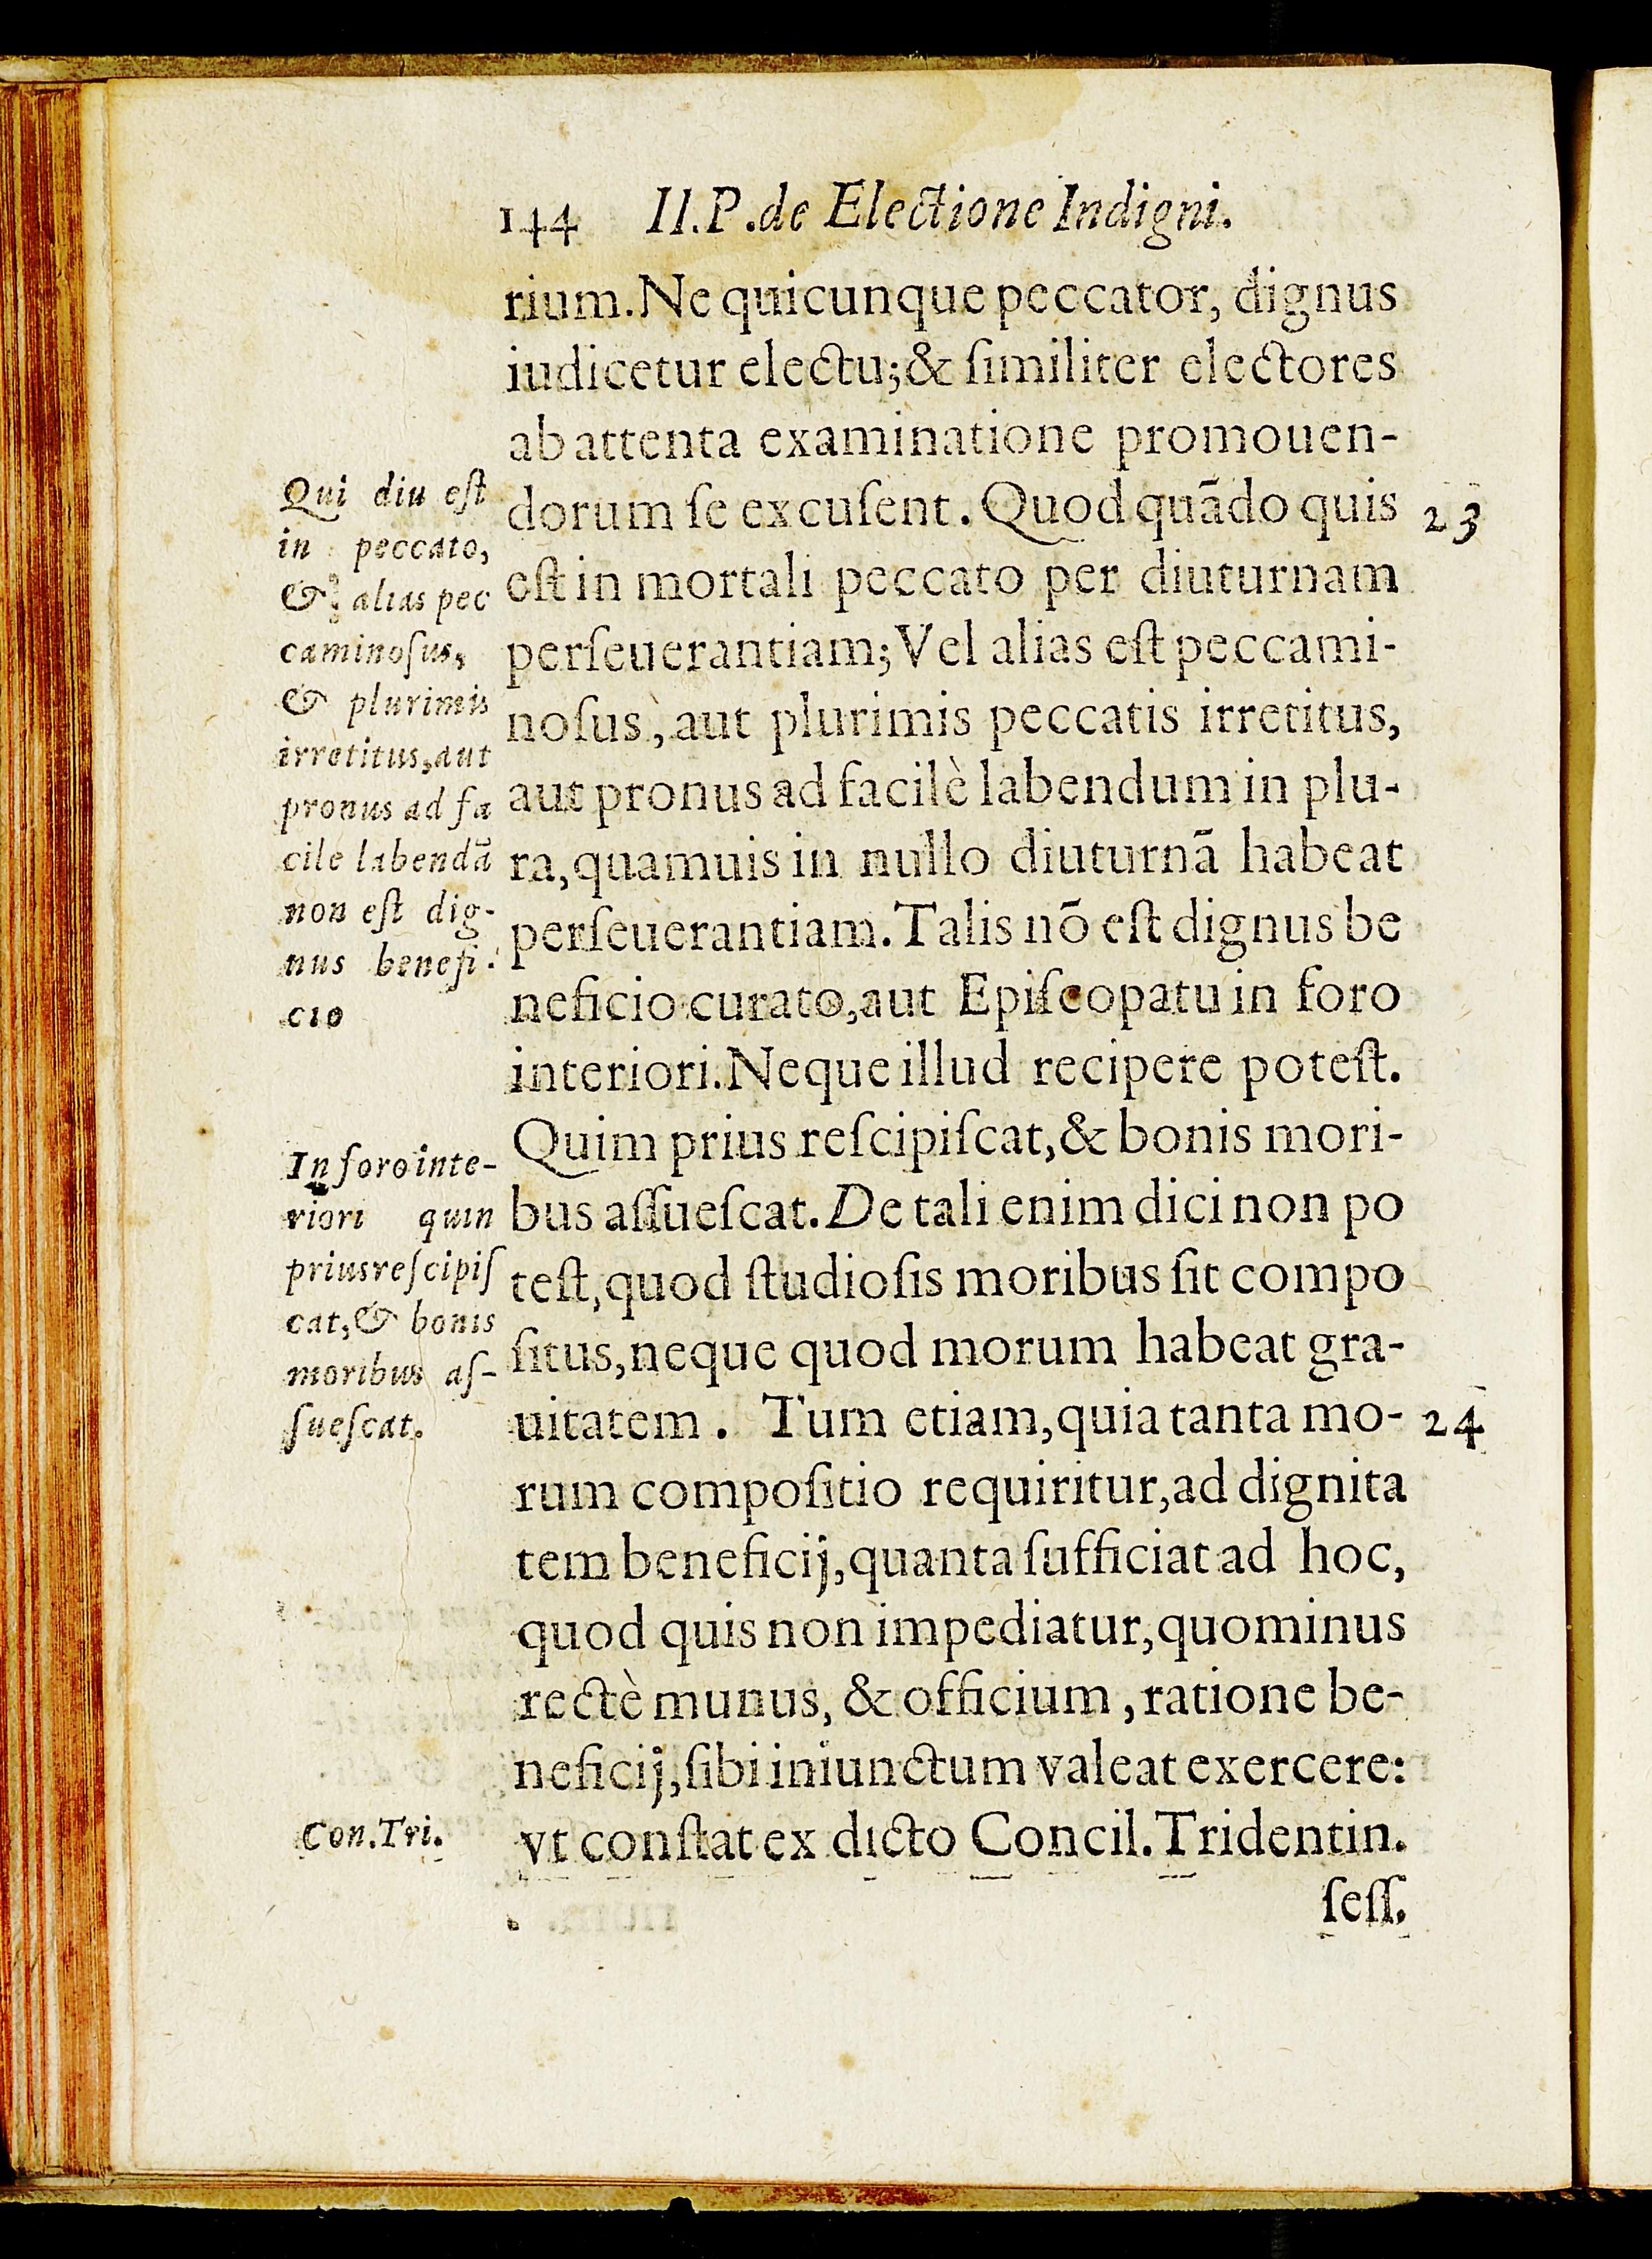 144 II.P.de Electione Indigni.
rium. Ne quicunque peccator, dignus
iudicetur electu; & ſimiliter electores
ab attenta examinatione promouen-
dorum ſe excuſent. Quod quãdo quis
eſt in mortali peccato per diuturnam
perſeuerantiam; Vel alias eſt peccami-
noſus, aut plurimis peccatis irretitus,
aut pronus ad facilè labendum in plu-
ra, quamuis in nullo diuturnã habeat
perſeuerantiam. Talis nõ eſt dignus be
neficio curato, aut Epiſcopatu in foro
interiori. Neque illud recipere poteſt.
Quim prius reſcipiſcat, & bonis mori-
bus aſſueſcat. De tali enim dici non po
teſt, quod ſtudioſis moribus ſit compo
ſitus, neque quod morum habeat gra-
uitatem. Tum etiam, quia tanta mo-
rum compoſitio requiritur, ad dignita
tem beneficij, quanta ſufficiat ad hoc,
quod quis non impediatur, quominus
rectè munus, & officium, ratione be-
neficij, ſibi iniunctum valeat exercere:
vt conſtat ex dicto Concil. Tridentin.
ſeſſ.
Qui diu eſt
in peccato,
& alias pec
caminoſus,
& plurimis
irretitus, aut
pronus ad fa
cile labendũ
non eſt dig-
nus benefi-
cio
In foro inte-
riori quin
prius reſcipiſ
cat, & bonis
moribus aſ-
ſueſcat.
Con.Tri.
23
24